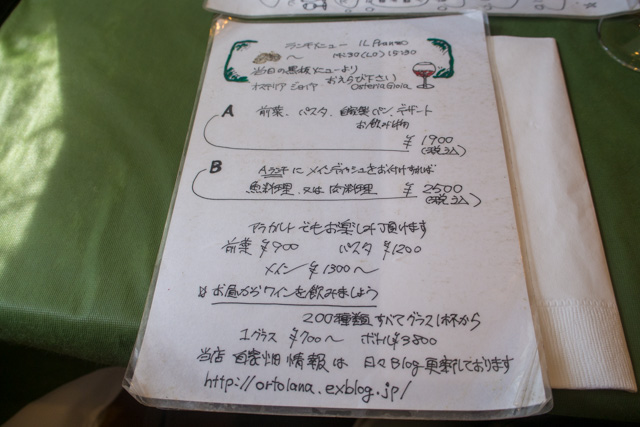 ランチメニュー IL Pranzo
～ 14:30 (LO) 15:30
当日の黒板メニューより
おえらび下さい
オステリア ジョイア Osteria Gioia
A 前菜、パスタ、自家製パン、デザート
お飲み物
¥1900
(税込)
B Aランチにメインディッシュをお付けすれば
魚料理 又は 肉料理 ¥2500
(税込)
アラカルトでもお楽しみ頂けます
前菜 ¥900 パスタ ¥1200
メイン ¥1300～
お昼からワインを飲みましょう
200種類 すべてグラス1杯から
1グラス ¥700～ ボトル¥3800
当店 自家畑 情報は 日々Blog更新しております
http://ortolana.exblog.jp/